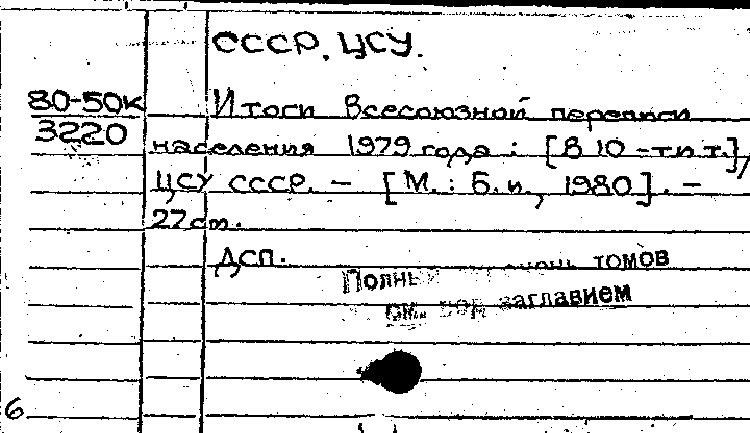 СССР. ЦСУ.
80-50к
3220
Итоги Всесоюзной переписи
населения 1979 года : [В 10-ти т.] /
ЦСУ СССР. — [М. : Б. и., 1980]. —
27 см.
ДСП.
Полный томов
см. под заглавием
6